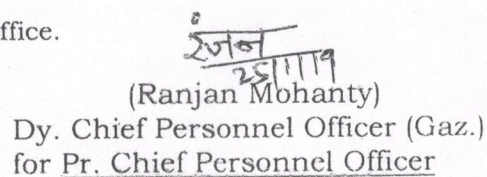 ffice.
रंजन
25/11/19
(Ranjan Mohanty)
Dy. Chief Personnel Officer (Gaz.)
for Pr. Chief Personnel Officer